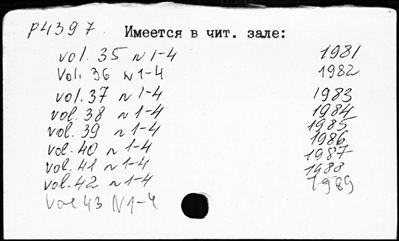 P4397
Имеется в чит. зале:
vol. 35 N 1-4 1981
Vol. 36 N 1-4 1982
vol. 37 N 1-4 1983
vol. 38 N 1-4 1984
vol. 39 N 1-4 1985
vol. 40 N 1-4 1986
vol. 41 N 1-4 1987
vol. 42 N 1-4 1988
Vol 43 N 1-4 1989